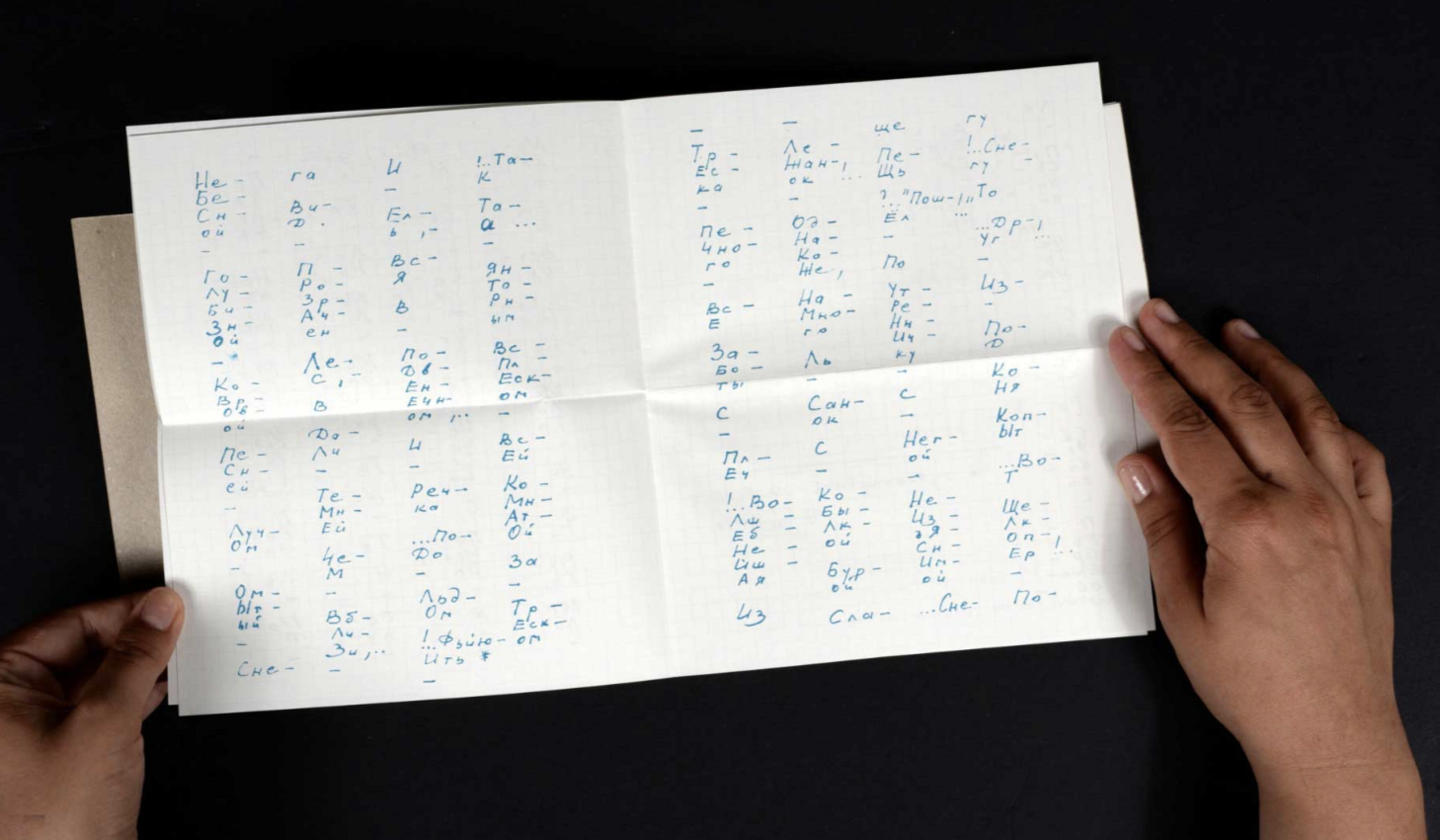 Не-
Бе-
Сн-
ой
–
Го-
Лу-
Би-
Зн-
ой
–
Ко-
Вр-
Ов-
ой
Пе-
Сн-
ей
–
Луч-
Ом
–
Ом-
Ыт-
ый
–
Сне-
га
Ви-
Д.
–
П-
Ро-
Зр-
Ач-
ен
Ле-
С,-
В
Да-
Ли
–
Те-
Мн-
Ей
Че-
М
–
Вб-
Ли-
Зи,..
–
И
–
Ел-
ь,-
Вс-
Я
В
–
По-
Дв-
Ен-
Ечн-
ом,...
И
–
Реч-
ка
...По-
До
–
Льд-
Ом
!..Фьйю-
Ить*
–
!..Та-
К
Та-
а...
–
Ян-
То-
Рн-
ым
Вс-
Пл-
Еск-
ом
–
Вс-
Ей
Ко-
Мн-
Ат-
Ой
За
–
Тр-
Еск-
ом
–
Тр-
Ес-
ка
–
Пе-
Чно-
го
–
Вс-
Е
За-
Бо-
ты
С
–
Пл-
Еч
!..Во-
Лш-
Еб-
Не-
Йш-
Ая
Из
–
Ле-
Жан-
ок!...
–
Од-
На-
Ко-
Же,
На-
Мно-
го
Ль
–
Сан-
ок
С
–
Ко-
Бы-
Лк-
ой
Бур-
ой
Сла-
ще
Пе-
Щь
?.."Пош-
Ёл!"...
–
По
Ут-
Ре-
Нн-
Ич-
ку
–
С
–
Нег-
ой
–
Не-
Из-
ъЯ-
Сн-
Им-
ой
...Сне-
гу
!..Сне-
гу-
То
...Др-
уг!...
–
Из-
–
По-
Д
Ко-
Ня
Коп-
Ыт
...Во-
Т
Ще-
Лк-
Оп-
Ер!..
–
По-